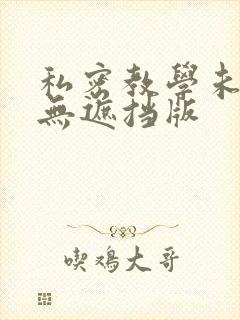 私密教學未
無遮挡版
喫鸡大哥